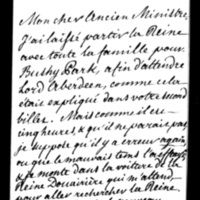 Mon cher Ancien Ministre,
J'ai laissé partir la Reine
avec toute la famille pour
Bushy Park, afin d'attendre
Lord Aberdeen, comme cela
était expliqué dans votre second
billet. Mais comme il est
cinq heures & qu'il ne parait pas
je suppose qu'il y a erreur again,
ou que le mauvais tems l'a
& je monte dans la voiture de la
Reine Douairière qui m'attend
pour aller rechercher la Reine